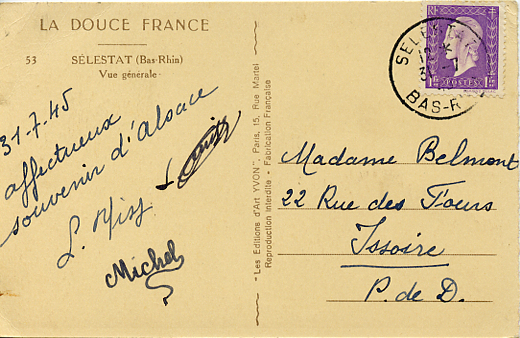 LA DOUCE FRANCE
53 SÉLESTAT (Bas-Rhin)
Vue générale
31-7-45
affectueux
souvenir d'alsace
Michel
"Les Editions d'Art YVON", Paris, 15, Rue Martel
Reproduction Interdite - Fabrication Française
POSTES
1F 1F
SELESTAT
BAS-R
Madame Belmont
22 Rue des Fours
Issoire
P. de D.